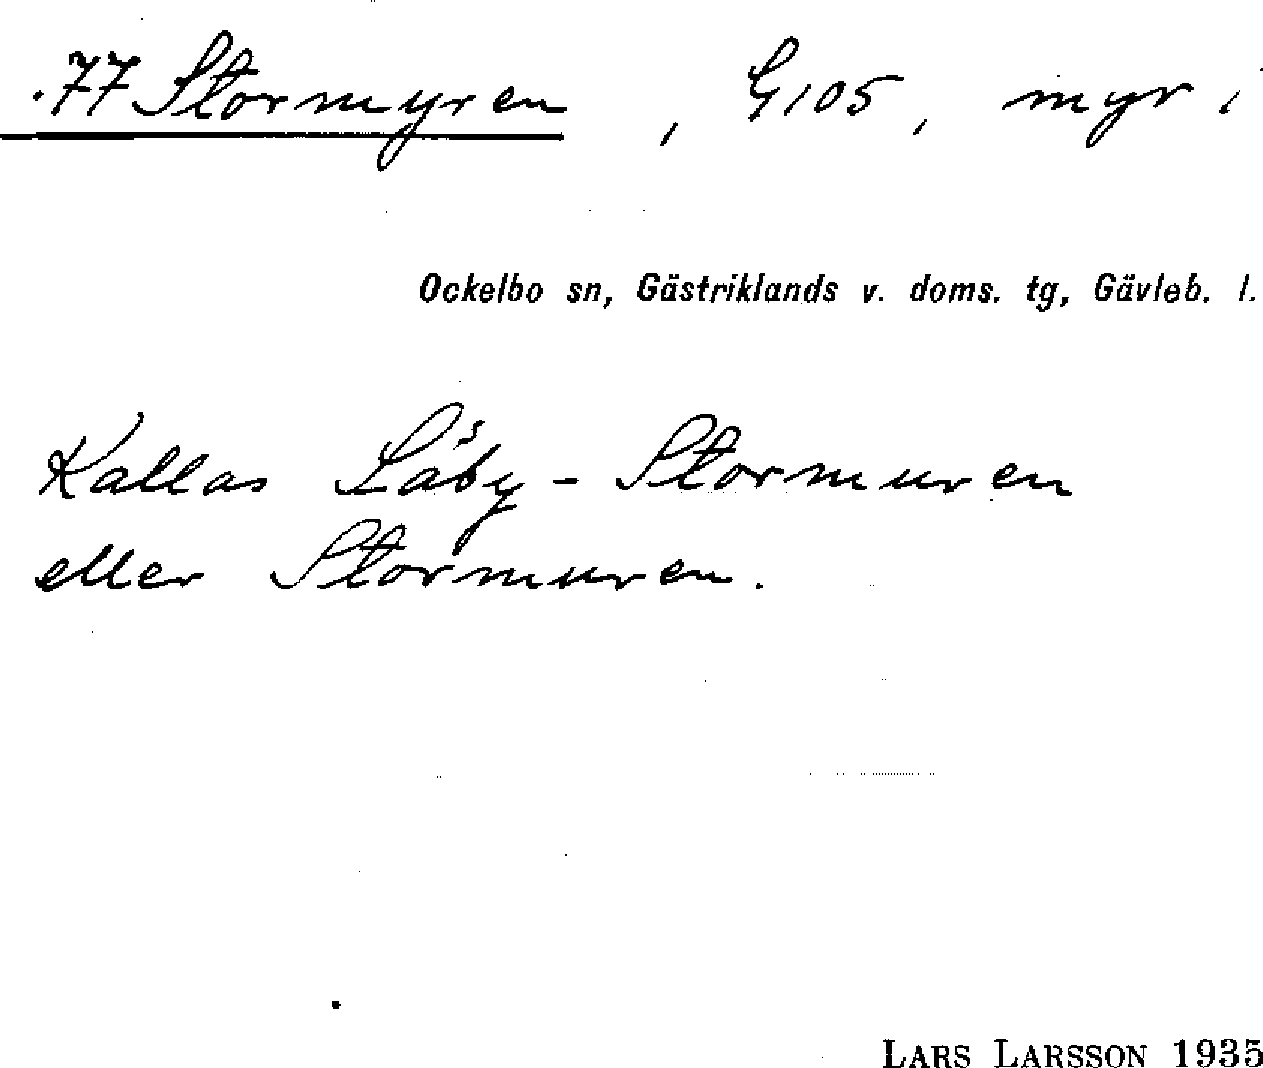 .77 Stormyren , G105, myr i
Ockelbo sn, Gästriklands v. doms. tg, Gävleb. l.
Kallas Låsby-Stormuren
eller Stormuren.
LARS LARSSON 1935